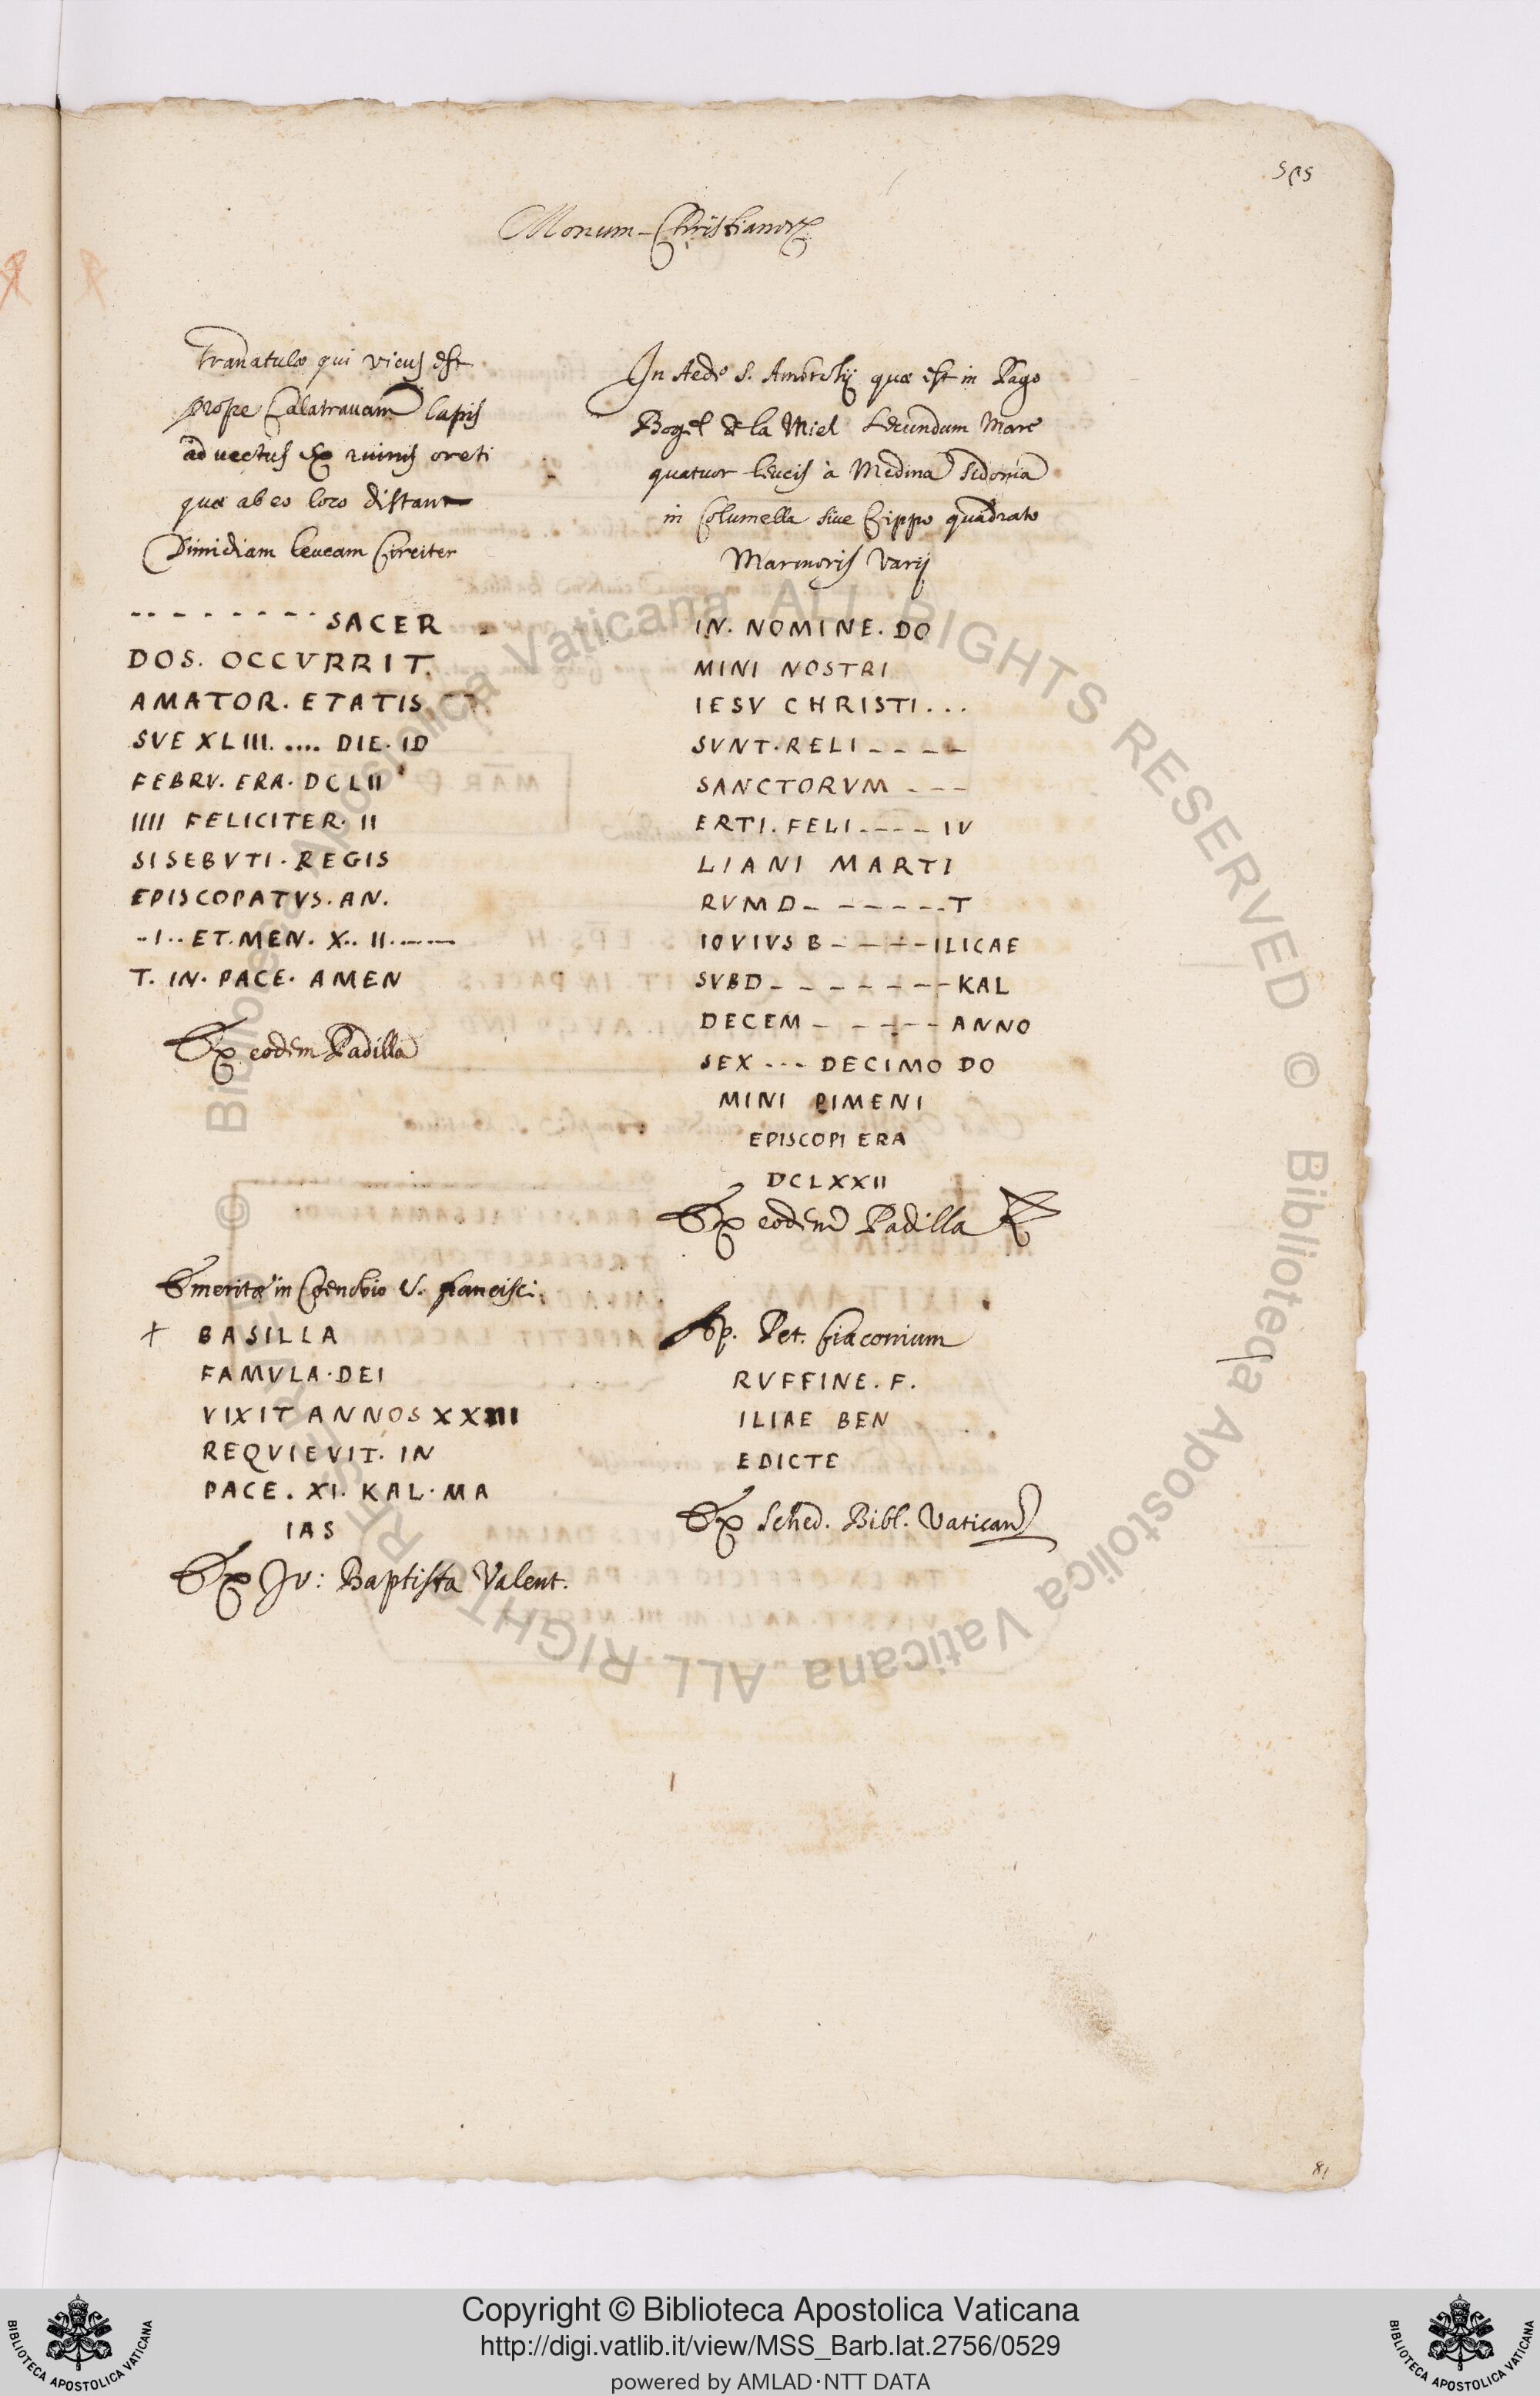 525
Monum-Christianorꝝ
Granatulæ qui vicus est
prope Calatrauam lapis
aduectus ex ruinis oreti
quæ ab eo loco distant
Dimidiam leucam Circiter
-- - - - - - - SACER
DOS. OCCVRRIT.
AMATOR. ETATIS
SVE XLIII. .... DIE. ID
FEBRV. ERA. DCLII
IIII FELICITER. II
SISEBVTI. REGIS
EPISCOPATVS. AN.
..I.. ET. MEN. X.. II. ----
T. IN. PACE. AMEN
Ex eodem Padilla
Emeritæ in Cœnobio S. francisci
+ BASILLA
FAMVLA. DEI
VIXIT ANNOS XXIII
REQVIEVIT. IN
PACE. XI. KAL. MA
IAS
Ex Jo: Baptista Valent.
In Aede S. Ambrosij quæ est in Pago
Bogel de la Miel Secundum Mare
quatuor leucis à Medina Sidonia
in Columella siue Cippo quadrato
Marmoris Varij
IN. NOMINE. DO
MINI NOSTRI
IESV CHRISTI...
SVNT. RELI - - - -
SANCTORVM - - -
ERTI. FELI. - - - IV
LIANI MARTI
RVM D - - - - - - T
IOVIVS B - - - - ILICAE
SVBD - - - - - - - KAL
DECEM - - - - - ANNO
SEX --- DECIMO DO
MINI PIMENI
EPISCOPI ERA
DCLXXII
Ex eodem Padilla
Ap. Pet. Ciaconium
RVFFINE. F.
ILIAE BEN
EDICTE
Ex Sched. Bibl. Vatican
81
© Biblioteca Apostolica Vaticana ALL RIGHTS RESERVED © Biblioteca Apostolica Vaticana ALL RIGHTS RESERVED
Copyright © Biblioteca Apostolica Vaticana
http://digi.vatlib.it/view/MSS_Barb.lat.2756/0529
powered by AMLAD·NTT DATA
BIBLIOTECA APOSTOLICA VATICANA
BIBLIOTECA APOSTOLICA VATICANA